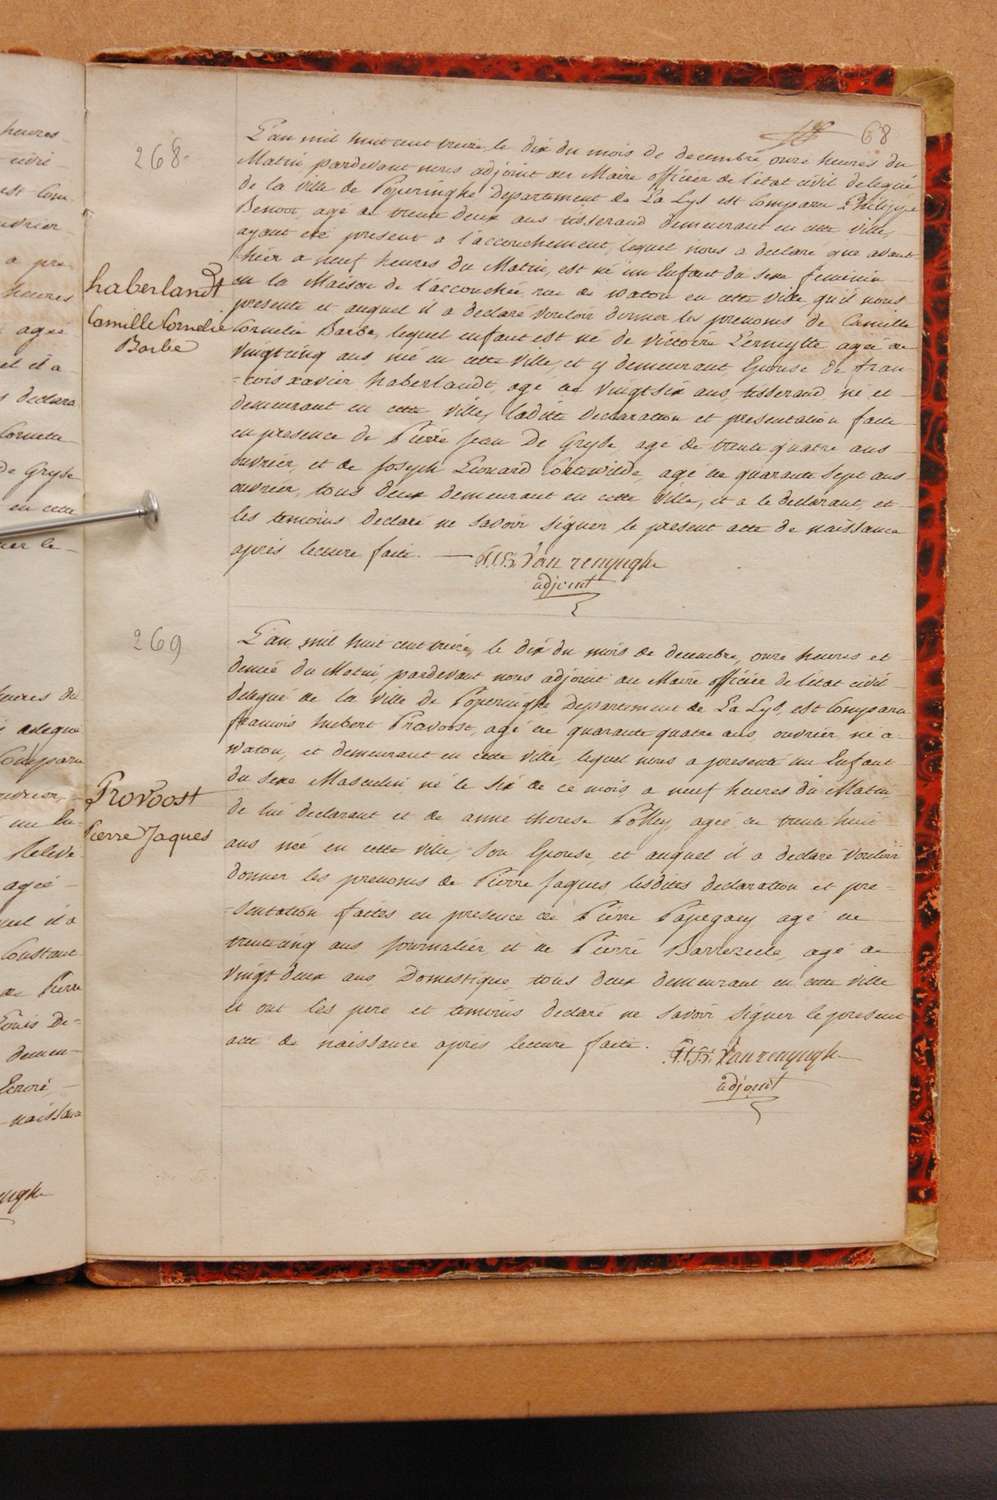 68
268.
L'an mil huit cent treize, le dix du mois de decembre onze heures du
Matin pardevant nous adjoint au Maire officier de l'état civil delegué
de la ville de Poperinghe Departement de La Lys est Comparu Philippe
Benoot, agé de trente deux ans tisserand demeurant en cette ville,
ayant eté present a l'accouchement, lequel nous a declaré que avant
hier a neuf heures du Matin, est né un Enfant du sexe feminin
en la Maison de l'accouchée rue de watou en cette ville qu'il nous
presente et auquel il a declaré vouloir donner les prenoms de Camille
Cornelie Barbe, lequel enfant est né de victoire Lermytte agée de
vingtcinq ans née en cette ville, et y demeurant Epouse de fran
-cois xavier haberlandt agé de vingtsix ans, tisserand, né et
demeurant en cette ville, ladite declaration et presentation faite
en presence de Pierre Jean De Gryse, age de trente quatre ans
ouvrier, et de Joseph Leonard Cottewilde, agé de quarante sept ans
ouvrier, tous deux demeurant en cette ville, et a le declarant, et
les temoins declaré ne savoir signer le present acte de naissance
après lecture faite.
haberlandt
Camille Cornelie
Barbe
Van renynghe
adjoint
269
L'an mil huit cent treize, le dix du mois de decembre, onze heures et
demie du Matin, pardevant nous adjoint au Maire officier de l'état civil
delegué de la ville de Poperinghe Departement de La Lys, est Comparu
francois hubert Provoost, agé de quarante quatre ans ouvrier né a
watou, et demeurant en cette ville, lequel nous a presenté un Enfant
du sexe Masculin né le six de ce mois a neuf heures du Matin,
de lui declarant et de anne therese Polley, agée de trente huit
ans née en cette ville, son Epouse, et auquel il a declaré vouloir
donner les prenoms de Pierre Jaques, lesdites declaration et pre-
-sentation faites en presence de Pierre Papegaey agé de
trentecinq ans journalier, et de Pierre Barteseele, agé de
vingt deux ans Domestique, tous deux demeurant en cette ville
et ont les pere et temoins declaré ne savoir signer le present
acte de naissance après lecture faite.
Provoost
Pierre Jaques
Van renynghe
adjoint